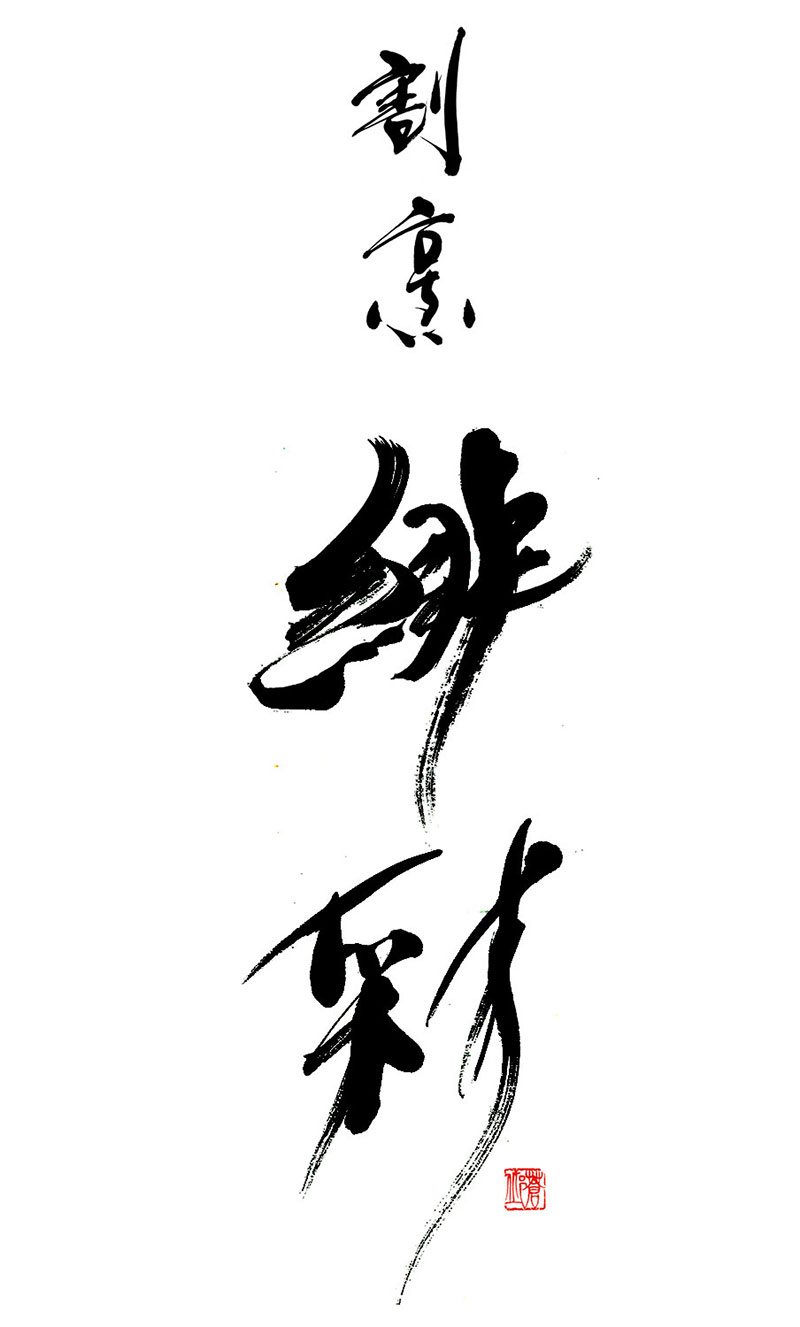 割烹
緋彩